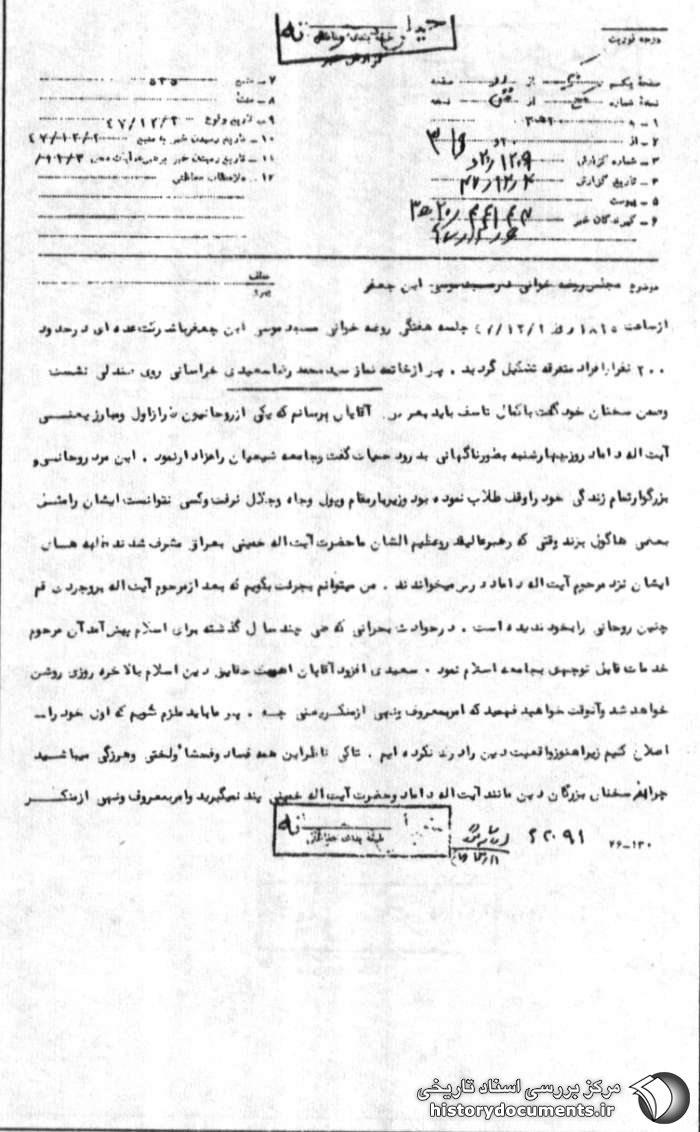 خیلی محرمانه
طبقه بندی حفاظتی
گزارش خبر
درجه فوریت
صفحه یکم از صفحه
نسخه شماره از نسخه
۱ ـ به
۲ ـ از ۲۰
۳ ـ شماره گزارش
۴ ـ تاریخ گزارش ۴۷/۱۲/۴
۵ ـ پیوست
۶ ـ گیرندگان خبر
۷ ـ منبع ۵۳۵
۸ ـ منشأ
۹ ـ تاریخ وقوع ۴۷/۱۲/۲
۱۰ ـ تاریخ رسیدن خبر به منبع ۴۷/۱۲/۲
۱۱ ـ تاریخ رسیدن خبر به رهبر عملیات
۱۲ ـ ملاحظات حفاظتی
موضوع مجلس روضه خوانی در مسجد موسی ابن جعفر
از ساعت ۱۸۱۵ روز جلسه هفتگی روضه خوانی مسجد موسی ابن جعفر باشرکت عده ای در حدود
۲۰۰ نفر از افراد متفرقه تشکیل گردید . پس از خاتمه نماز سید محمد رضا سعیدی خراسانی روی صندلی نشست
وضمن سخنان خود گفت با کمال تاسف باید بعرض آقایان برسانم که یکی از روحانیون طراز اول ومبارز یعنی
آیت اله داماد روز چهارشنبه بطور ناگهانی بدرود حیات گفت وجامعه شیعیان را عزادار نمود . این مرد روحانی و
بزرگوار تمام زندگی خود را وقف طلاب نموده بود وزیر بار مقام وپول وجاه وجلال نرفت وکسی نتوانست ایشان را مثل
بعضی ها گول بزند وقتی که رهبر عالیقدر وعظیم الشان ما حضرت آیت اله خمینی بعراق مشرف شدند طلبه های
ایشان نزد مرحوم آیت اله داماد درس میخواندند . من میتوانم بجرئت بگویم که بعد از مرحوم آیت اله بروجردی قم
چنین روحانی را بخود ندیده است . در حوادث بحرانی که طی چند سال گذشته برای اسلام پیش آمد آن مرحوم
خدمات قابل توجهی بجامعه اسلام نمود . سعیدی افزود آقایان اهمیت حقایق دین اسلام بالاخره روزی روشن
خواهد شد وآنوقت خواهید فهمید که امر بمعروف ونهی از منکر یعنی چه . پس ما باید ملزم شویم که اول خود را ـ
اصلاح کنیم زیرا هنوز واقعیت دین را درک نکرده ایم . تاکی ناظر این همه فساد وفحشا ولختی وهرزگی میباشید
چرا از سخنان بزرگان دین مانند آیت اله داماد وحضرت آیت اله خمینی پند نمیگیرید وامر بمعروف ونهی از منکر
۲۶-۱۳۰
خیلی محرمانه
طبقه بندی حفاظتی
مرکز بررسی اسناد تاریخی
historydocuments.ir